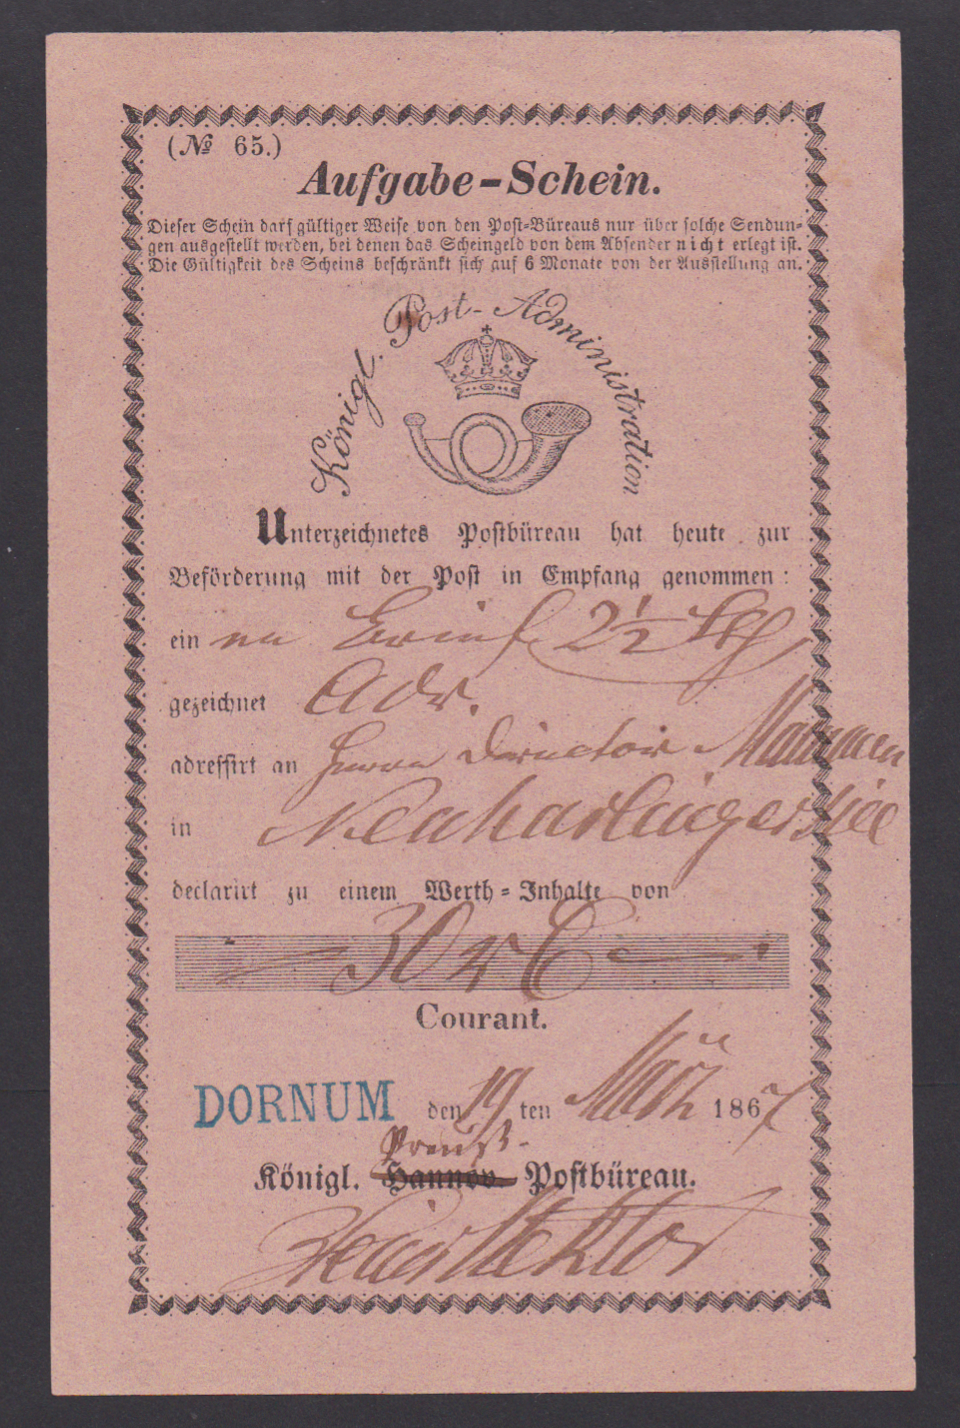 (№ 65.)
Aufgabe-Schein.
Dieser Schein darf gültiger Weise von den Post-Büreaus nur über solche Sendun-
gen ausgestellt werden, bei denen das Scheingeld von dem Absender nicht erlegt ist.
Die Gültigkeit des Scheins beschränkt sich auf 6 Monate von der Ausstellung an.
Königl. Post-Administration
Unterzeichnetes Postbüreau hat heute zur
Beförderung mit der Post in Empfang genommen:
ein en Brief 2½ Lth
gezeichnet Adr.
adressirt an Herrn Director Mammen
in Neuharlingersiel
declarirt zu einem Werth-Inhalte von
30
Courant.
DORNUM den 19 ten März 1867
Preuß.
Königl. Hannov. Postbüreau.